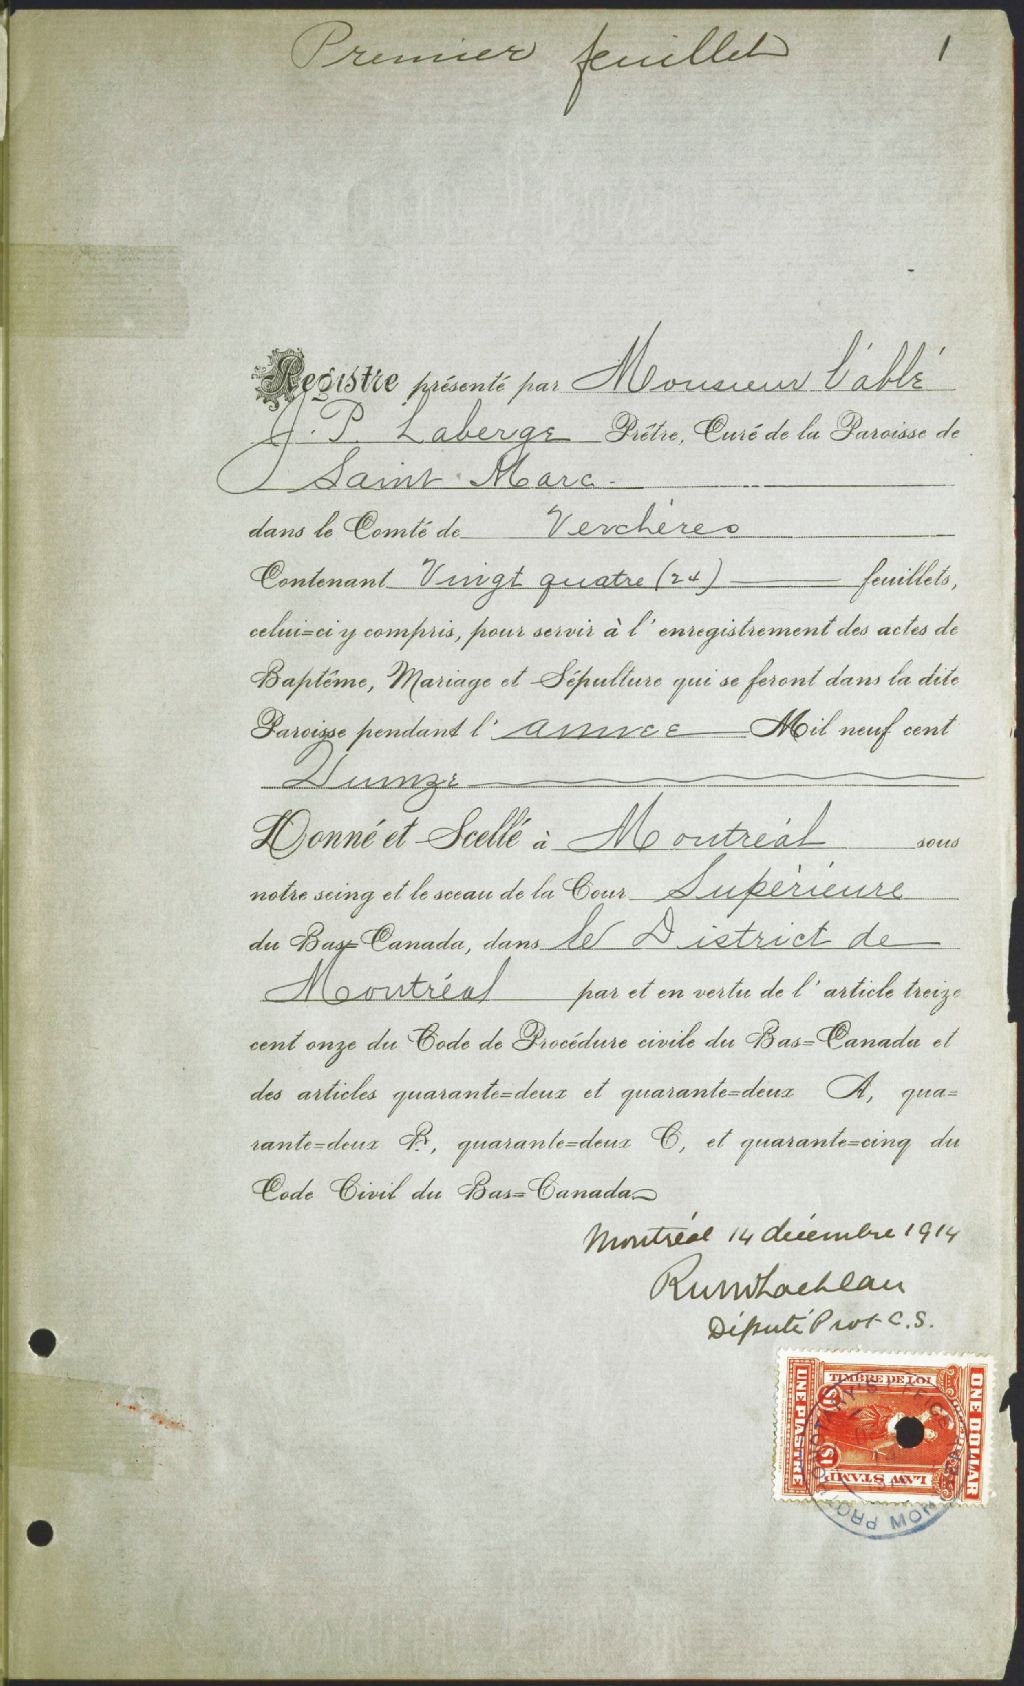 Premier feuillet 1
Registre présenté par Monsieur l'abbé
J. P. Laberge Prêtre, Curé de la Paroisse de
Saint Marc
dans le Comté de Verchères
Contenant Vingt quatre (24) feuillets,
celui=ci y compris, pour servir à l'enregistrement des actes de
Baptême, Mariage et Sépulture qui se feront dans la dite
Paroisse pendant l'année Mil neuf cent
Quinze
Donné et Scellé à Montréal sous
notre seing et le sceau de la Cour Supérieure
du Bas=Canada, dans le District de
Montréal par et en vertu de l'article treize
cent onze du Code de Procédure civile du Bas=Canada et
des articles quarante=deux et quarante=deux A, qua=
rante=deux B, quarante=deux C, et quarante=cinq du
Code Civil du Bas=Canada
Montréal 14 décembre 1914
Député Prot. C.S.
TIMBRE DE LOI
UNE PIASTRE
ONE DOLLAR
$1
$1
LAW STAMP